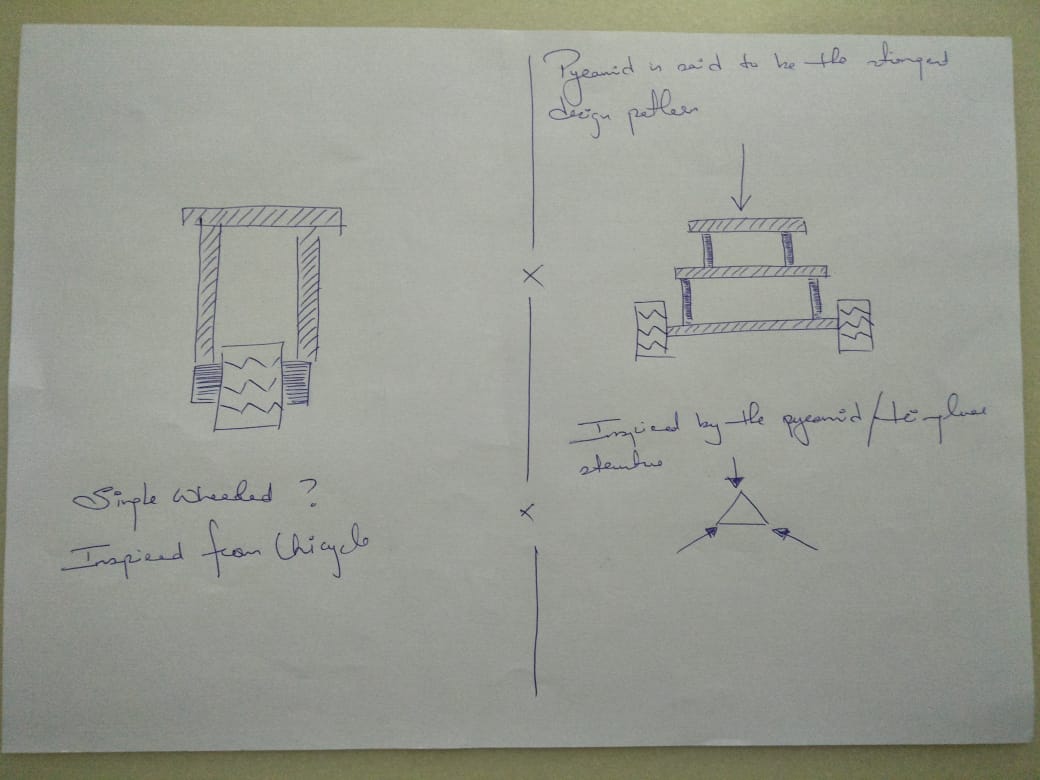 Single Wheeled ?
Inspired from Unicycle
Pyramid is said to be the strongest
design pattern
Inspired by the pyramid /
structure